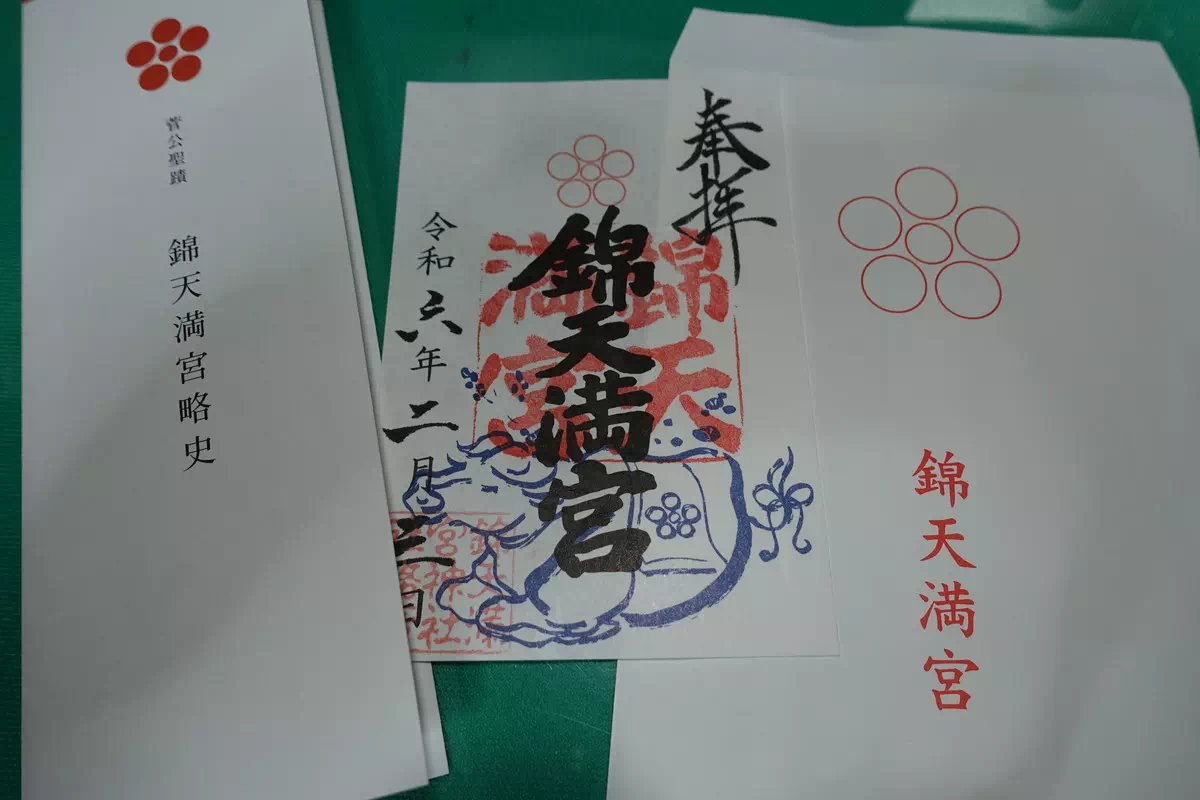 菅公聖蹟
錦天満宮略史
奉拝
錦天満宮
錦天
満宮
令和六年二月三日
錦天満宮